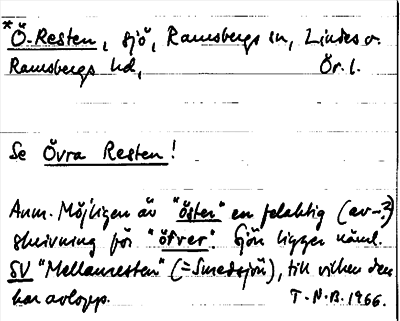 *Ö-Resten, sjö, Ramsbergs sn, Lindes o.
Ramsbergs hd, Ör. l.
Se Övra Resten!
Anm. Möjligen är "öster" en felaktig (av-?)
skrivning för "öfver". Sjön ligger näml.
SV "Mellanresten" (= Smedsjön), till vilken den
har avlopp. T.N.B. 1966.